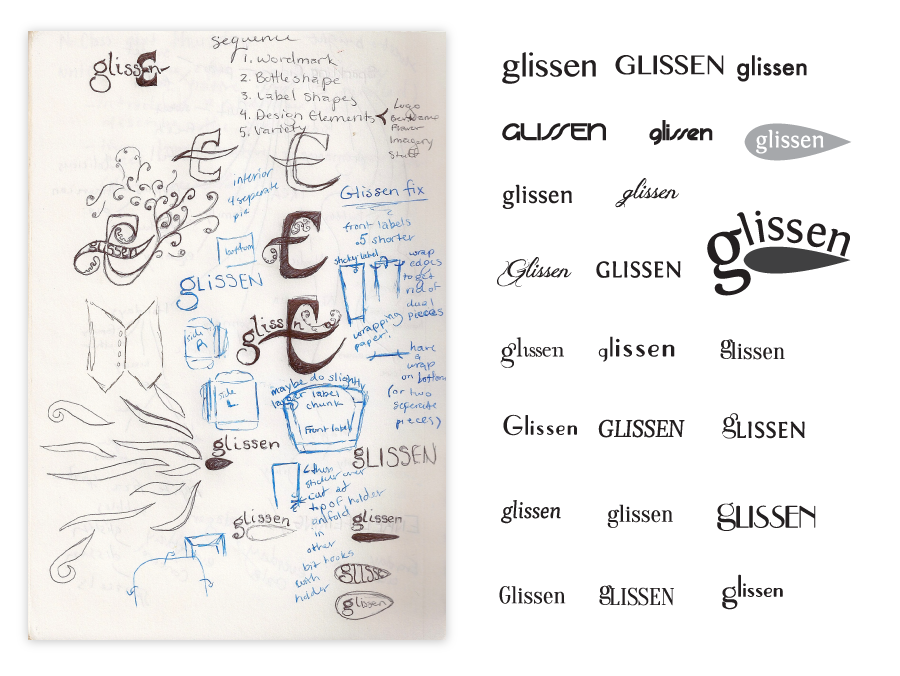 sequence
glissen
1. Wordmark
2. Bottle shape
3. Label shapes
4. Design Elements
5. Variety
Logo
Flavor
Imagery
interior
4 seperate
pie
Glissen fix
front labels
.5 shorter
glissen
bottom
sticker label
wrap
edges
to get
rid of
dual
pieces
gLISSEN
glissen
wrapping
paper!
side
R
have
a
wrap
on bottom
(or two
seperate
pieces)
maybe do slightly
larger label
chunk
side
L
front label
glissen
gLISSEN
then
sticker over
cut at
top of holder
glissen
glissen
in
other
bit hooks
with
holder
glisse
glissen
glissen GLISSEN glissen
GLISSEN glissen glissen
glissen glissen
glissen
Glissen GLISSEN
glissen glissen glissen
Glissen GLISSEN gLISSEN
glissen glissen gLISSEN
Glissen gLISSEN glissen